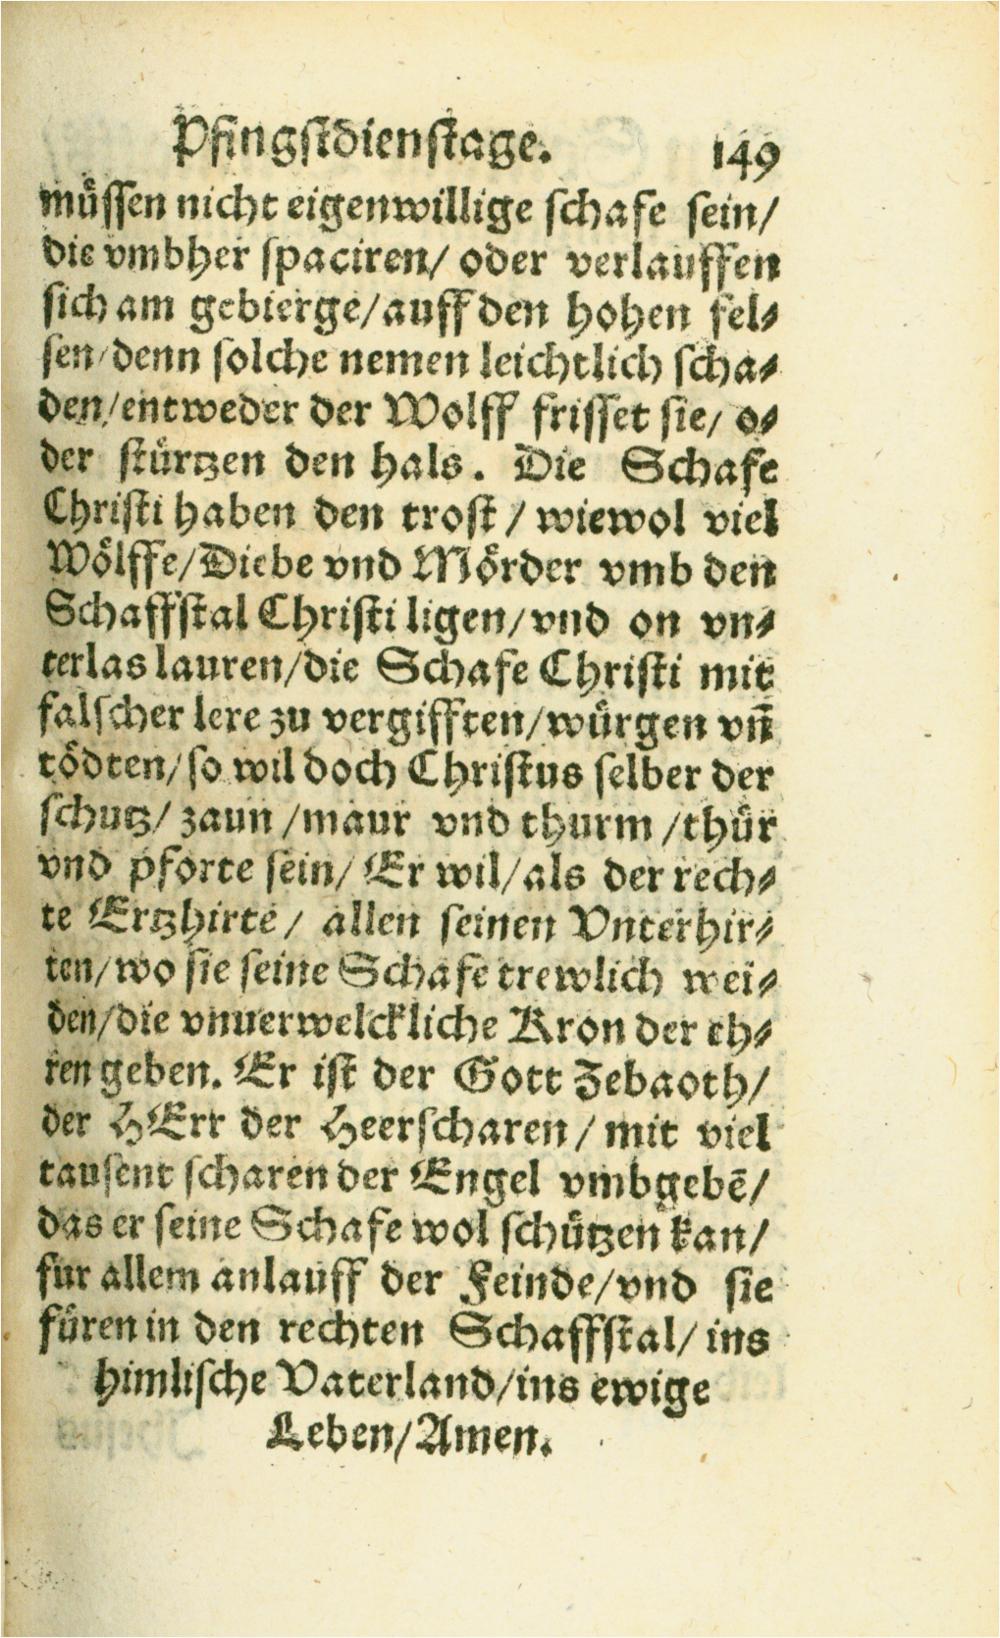 Pfingſtdienſtage. 149
muͤſſen nicht eigenwillige ſchafe ſein/
die vmbher ſpaciren/ oder verlauffen
ſich am gebierge/auff den hohen fel⸗
ſen/denn ſolche nemen leichtlich ſcha⸗
den/entweder der Wolff friſſet ſie/ o⸗
der ſtuͤrtzen den hals. Die Schafe
Chriſti haben den troſt / wiewol viel
Woͤlffe/Diebe vnd Moͤrder vmb den
Schaffſtal Chriſti ligen/vnd on vn⸗
terlas lauren/die Schafe Chriſti mit
falſcher lere zu vergifften/wuͤrgen vn̄
toͤdten/ſo wil doch Chriſtus ſelber der
ſchutz/ zaun /maur vnd thurm /thuͤr
vnd pforte ſein/ Er wil/als der rech⸗
te Ertzhirte/ allen ſeinen Vnterhir⸗
ten/wo ſie ſeine Schafe trewlich wei⸗
den/die vnuerwelckliche Kron der eh⸗
ren geben. Er iſt der Gott Zebaoth/
der HErr der Heerſcharen/ mit viel
tauſent ſcharen der Engel vmbgebē/
das er ſeine Schafe wol ſchuͤtzen kan/
fur allem anlauff der Feinde/vnd ſie
fuͤren in den rechten Schaffſtal/ ins
himliſche Vaterland/ins ewige
Leben/Amen.